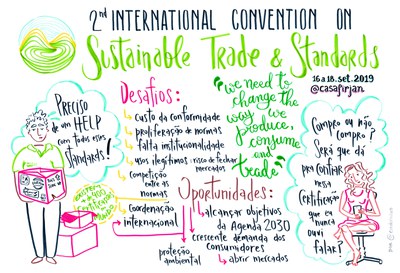 2nd INTERNATIONAL CONVENTION ON
Sustainable Trade & Standards
16 a 18. set. 2019
@casafirjan
PRECISO
de um HELP
com todos esses
Standards!
Desafios:
custo da conformidade
proliferação de normas
falta institucionalidade
usos ilegítimos: risco de fechar
mercados
competição
entre as
normas
Coordenação
internacional
"we need to
change the
way we
produce,
consume
and
trade"
Compro ou não
compro?
Será que dá
pra confiar
nessa
Certificação
que eu
nunca
ouvi
falar?
Oportunidades:
alcançar objetivos
da Agenda 2030
crescente demanda dos
Consumidores
proteção
ambiental
abrir mercados